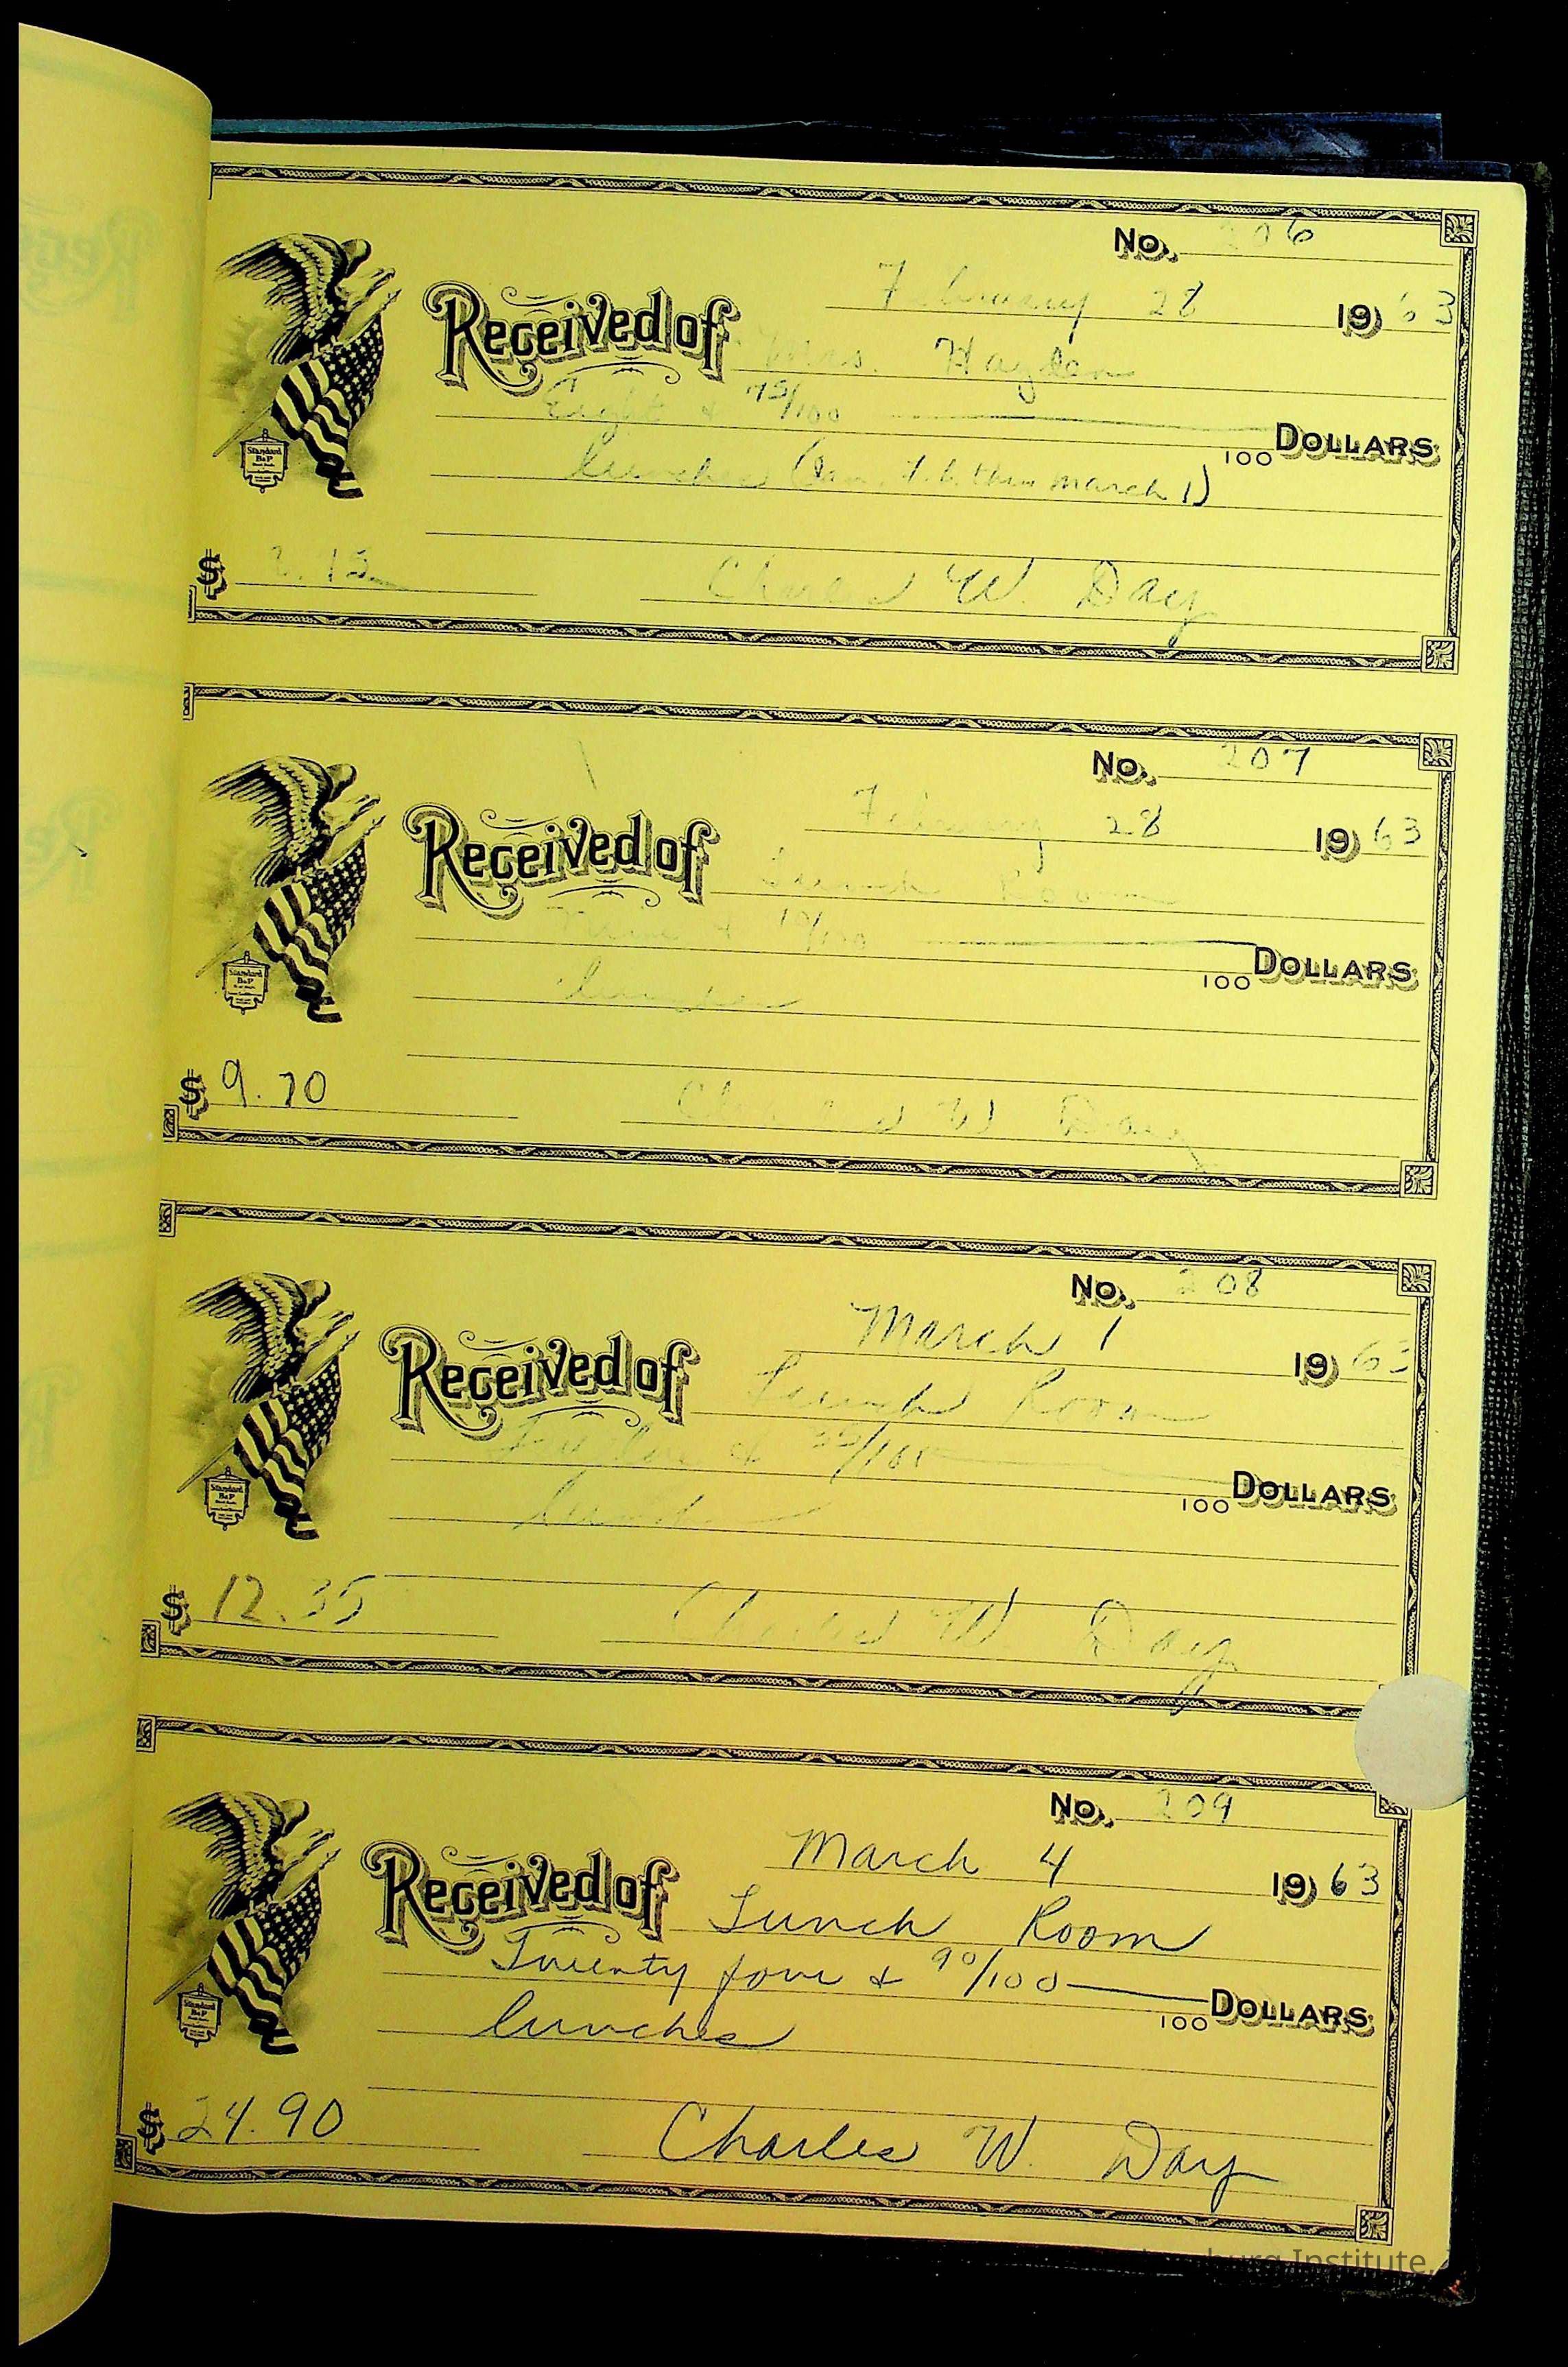 No. 206
February 28 1963
Received of Mrs. Hayden
Eight & 75/100 Dollars
100
lunches thru March 1)
$
Charles W. Day
No. 207
February 28 1963
Received of Lunch Room
Nine & /100 Dollars
100
lunches
$ 9.70
Charles W Day
No. 208
March 1 1963
Received of Lunch Room
Twelve & 35/100 Dollars
100
lunches
$ 12.35
Charles W. Day
No. 209
March 4 1963
Received of Lunch Room
Twenty four & 90/100 Dollars
100
lunches
$ 24.90
Charles W. Day
Institute,